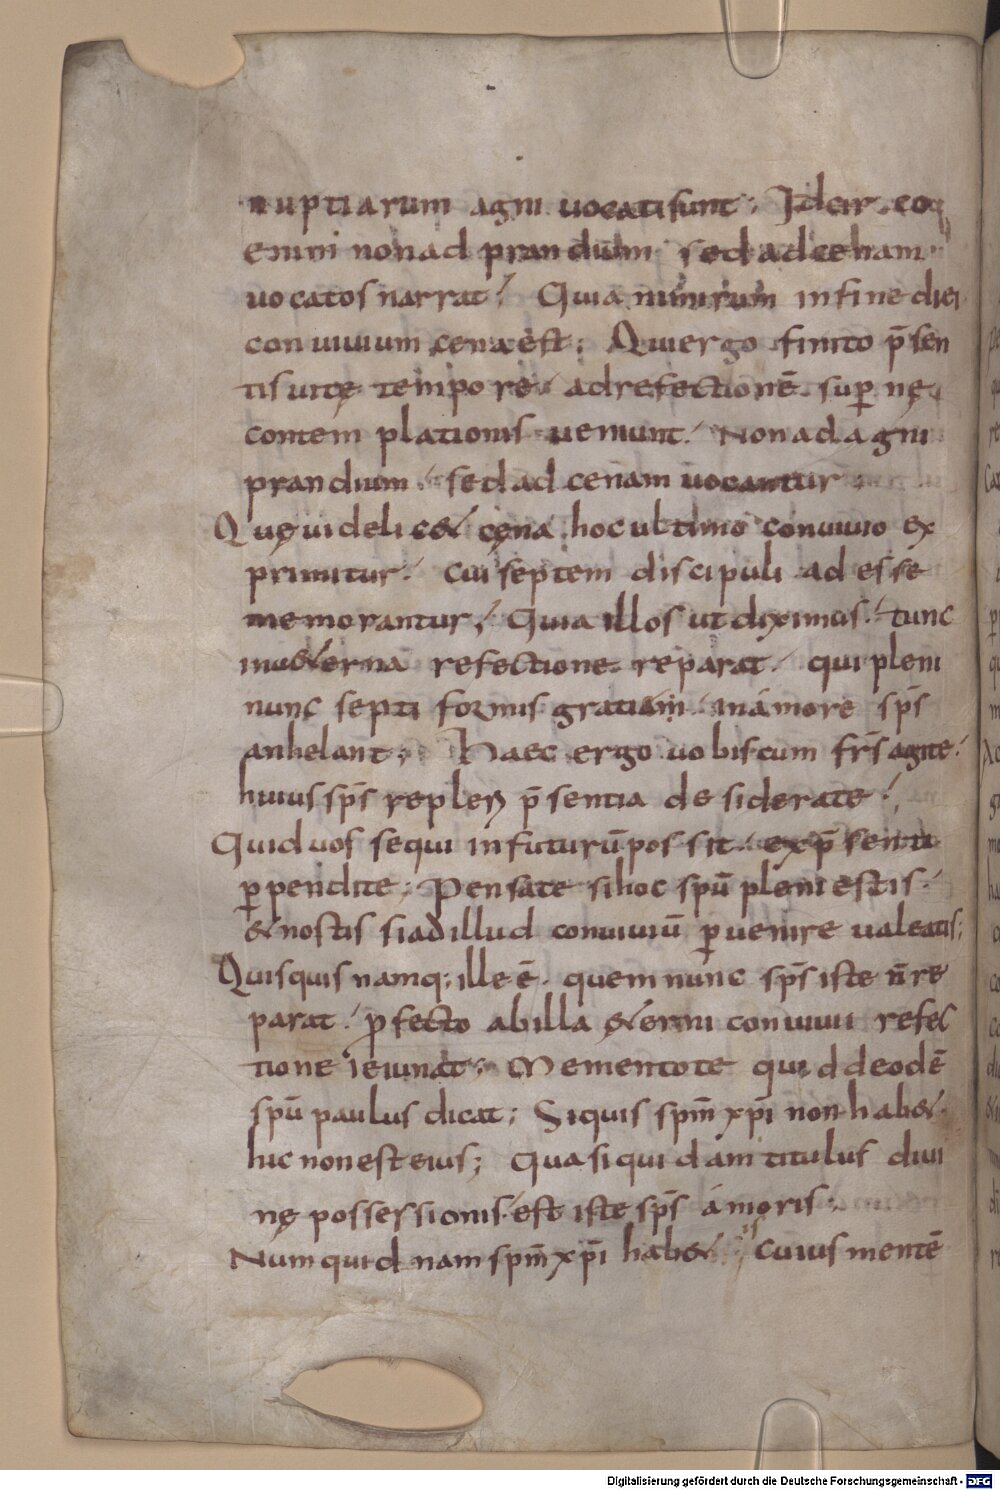 nuptiarum agni uocati sunt; Idcirco q
enim non ad prandium sed ad cenam
uocatos narrat; Quia nimirum in fine diei
conuiuium cena est; Qui ergo finito p̄sen
tis uitę tempore. ad refectionē supnę
contemplationis ueniunt. Non ad agni
prandium. sed ad cenam uocantur.
Quę uidelic& cęna hoc ultimo conuiuio ex
primitur. Cui septem discipuli adesse
memorantur; Quia illos ut diximus. tunc
in &erna refectione reparat. qui pleni
nunc septiformis gratiam. in amore sp̄s
anhelant; Haec ergo uobiscum fr̄s agite.
huius sp̄s repleri p̄sentia desiderate.
Quid uos sequi in futurū possit. ex p̄senti
ꝑpendite; Pensate si hoc spū pleni estis.
& nostis si ad illud conuiuiū ꝑuenire ualeatis;
Quisquis namq; ille ē. quem nunc sp̄s iste n̄ re
parat. ꝓfecto ab illa &erni conuiuii refec
tione ieiunat; Mementote quid de odē
spū paulus dicat; Si quis spm̄ xp̄i non hab&.
hic non est eius; Quasi quidam titulus diui
nę possessionis est iste sp̄s amoris;
Numquidnam spm̄ xp̄i hab& is cuius mentē
Digitalisierung gefördert durch die Deutsche Forschungsgemeinschaft - DFG